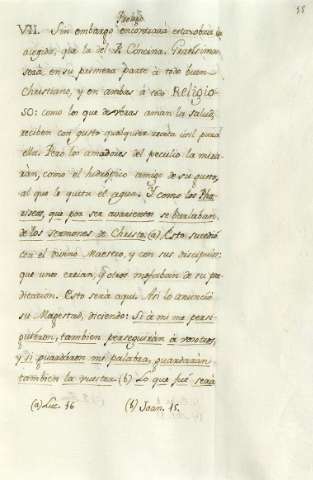 Prologo
35
VII. Sin embargo encontrará esta obra la
acogida, que la del P. Concina. Gratissima
será, en su primera parte à todo buen
Christiano, y en ambas à todo Religio-
so: como los que de veras aman la salud,
reciben con gusto qualquier receta util para
ella. Pero los amadores del peculio la mira-
rán, como el hidropico amigo de su gusto,
al que le quita el agua. Y como los Pha-
riseos, que por ser avarientos se burlaban
de los sermones de Christo. (a) Esto sucedió
con el divino Maestro, y con sus discipulos:
que unos creían, y otros mofaban de su pre-
dicacion. Esto será aqui. Asi lo anunció
su Magestad, diciendo: Si à mi me persi-
guieron, tambien perseguirán à vosotros,
y si guardaron mi palabra, guardarán
tambien la vuestra. (b) Lo que fué será
(a) Luc. 16 (b) Joan. 15.